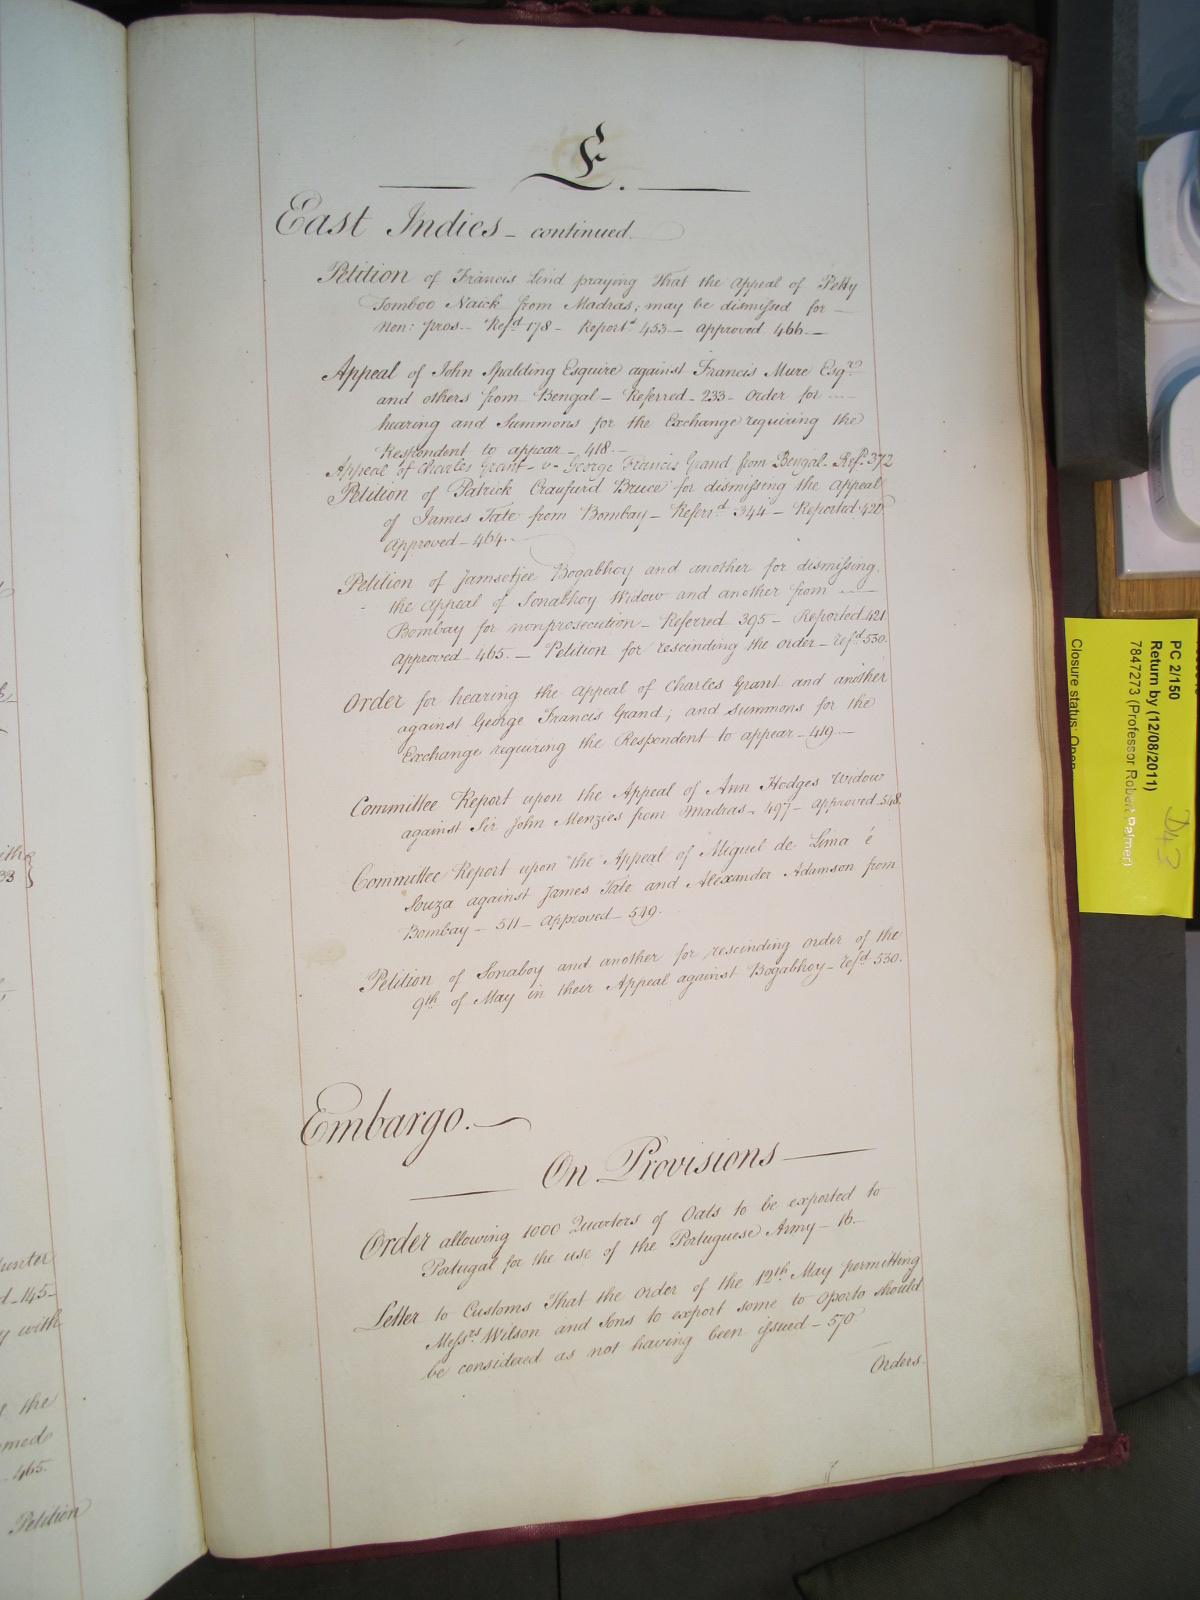 E.
East Indies - continued
Petition of Francis Lind praying That the Appeal of Petty
Tomboo Naick from Madras; may be dismissed for —
non: pros - Ref^d 178 - Report^d 453 - approved 466 -
Appeal of John Spalding Esquire against Francis Mure Esq^re
and others from Bengal - Referred - 233 - Order for ----
hearing and Summons for the Exchange requiring the
Respondent to appear - 418 -
Appeal of Charles Grant - v - George Francis Grand from Bengal - Ref. 372
Petition of Patrick Craufurd Bruce for dismissing the appeal
of James Tate from Bombay - Referr^d 344 - Reported 420
Approved - 464. -
Petition of Jamsetjee Bogabhoy and another for dismissing.
the Appeal of Sonabhoy Widow and another from ----
Bombay for nonprosecution - Referred 395 - Reported 421
Approved - 465. - Petition for rescinding the order - ref^d 530.
Order for hearing the Appeal of Charles Grant and another
against George Francis Grand; and Summons for the
Exchange requiring the Respondent to appear - 419 -
Committee Report upon the Appeal of Ann Hodges Widow
against Sir John Menzies from Madras - 497 - approved 548.
Committee Report upon the Appeal of Miguel de Lima é
Souza against James Tate and Alexander Adamson from
Bombay - 511 - Approved - 549.
Petition of Sonaboy and another for rescinding order of the
9th of May in their Appeal against Bogabhoy - ref^d 530.
Embargo. -
On Provisions
Order allowing 1000 Quarters of Oats to be exported to
Portugal for the use of the Portuguese Army - 16 -
Letter to Customs That the Order of the 12th May permitting
Mess^rs Wilson and Sons to export some to Oporto should
be considered as not having been issued - 570
Orders
unter
d - 145 -
y with
the
med
465.
Petition
PC 2/150
Return by (12/08/2011)
7847273 (Professor Robert Palmer)
Closure status: Open
D43